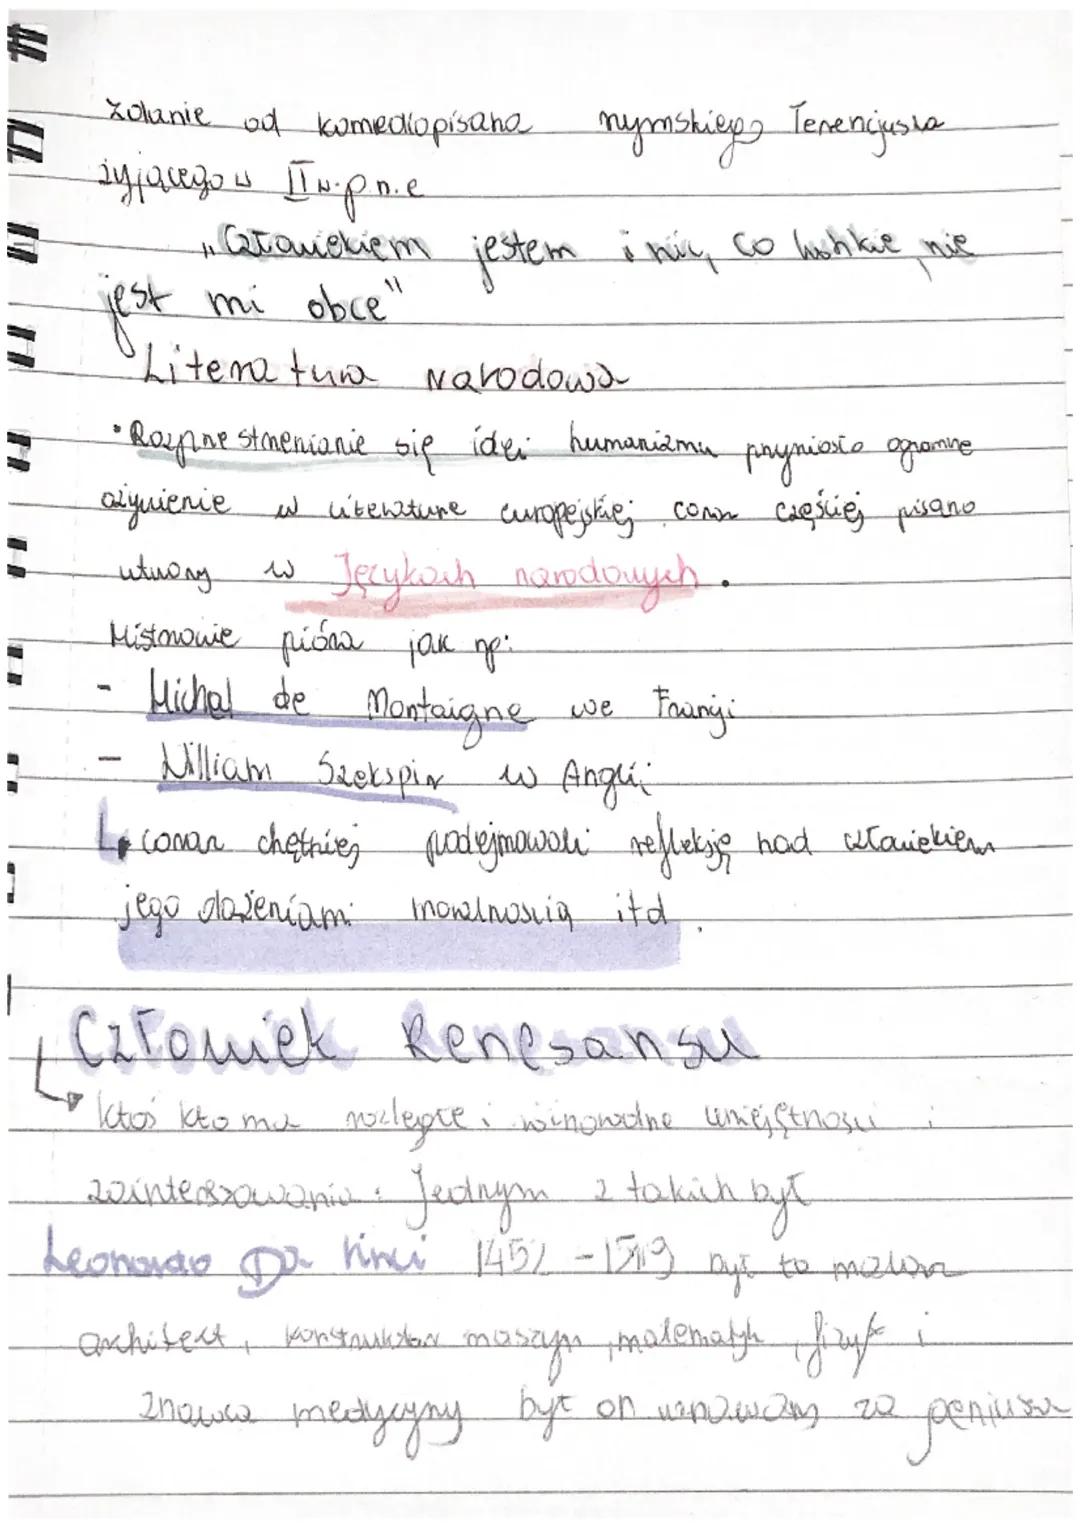 zdanie od komediopisarza rzymskiego Terencjusza
żyjącego w II w. p.n.e
„Człowiekiem jestem i nic, co ludzkie, nie
jest mi obce"
Literatura Narodowa
• Rozprzestrzenianie się idei humanizmu przyniosło ogromne
ożywienie w literaturze europejskiej coraz częściej pisano
utwory w Językach narodowych.
Mistrzowie pióra jak np:
- Michal de Montaigne we Francji
- William Szekspir w Anglii
↳ coraz chętniej podejmowali refleksję nad człowiekiem
jego dążeniami moralnością itd.
Człowiek Renesansu
↳ ktoś kto ma rozległe i różnorodne umiejętności i
zainteresowania. Jednym z takich był
Leonardo Da Vinci 1452 - 1519 był to malarz
architekt, konstruktor maszyn, matematyk, fizyk i
znawca medycyny był on uznawany za geniusza